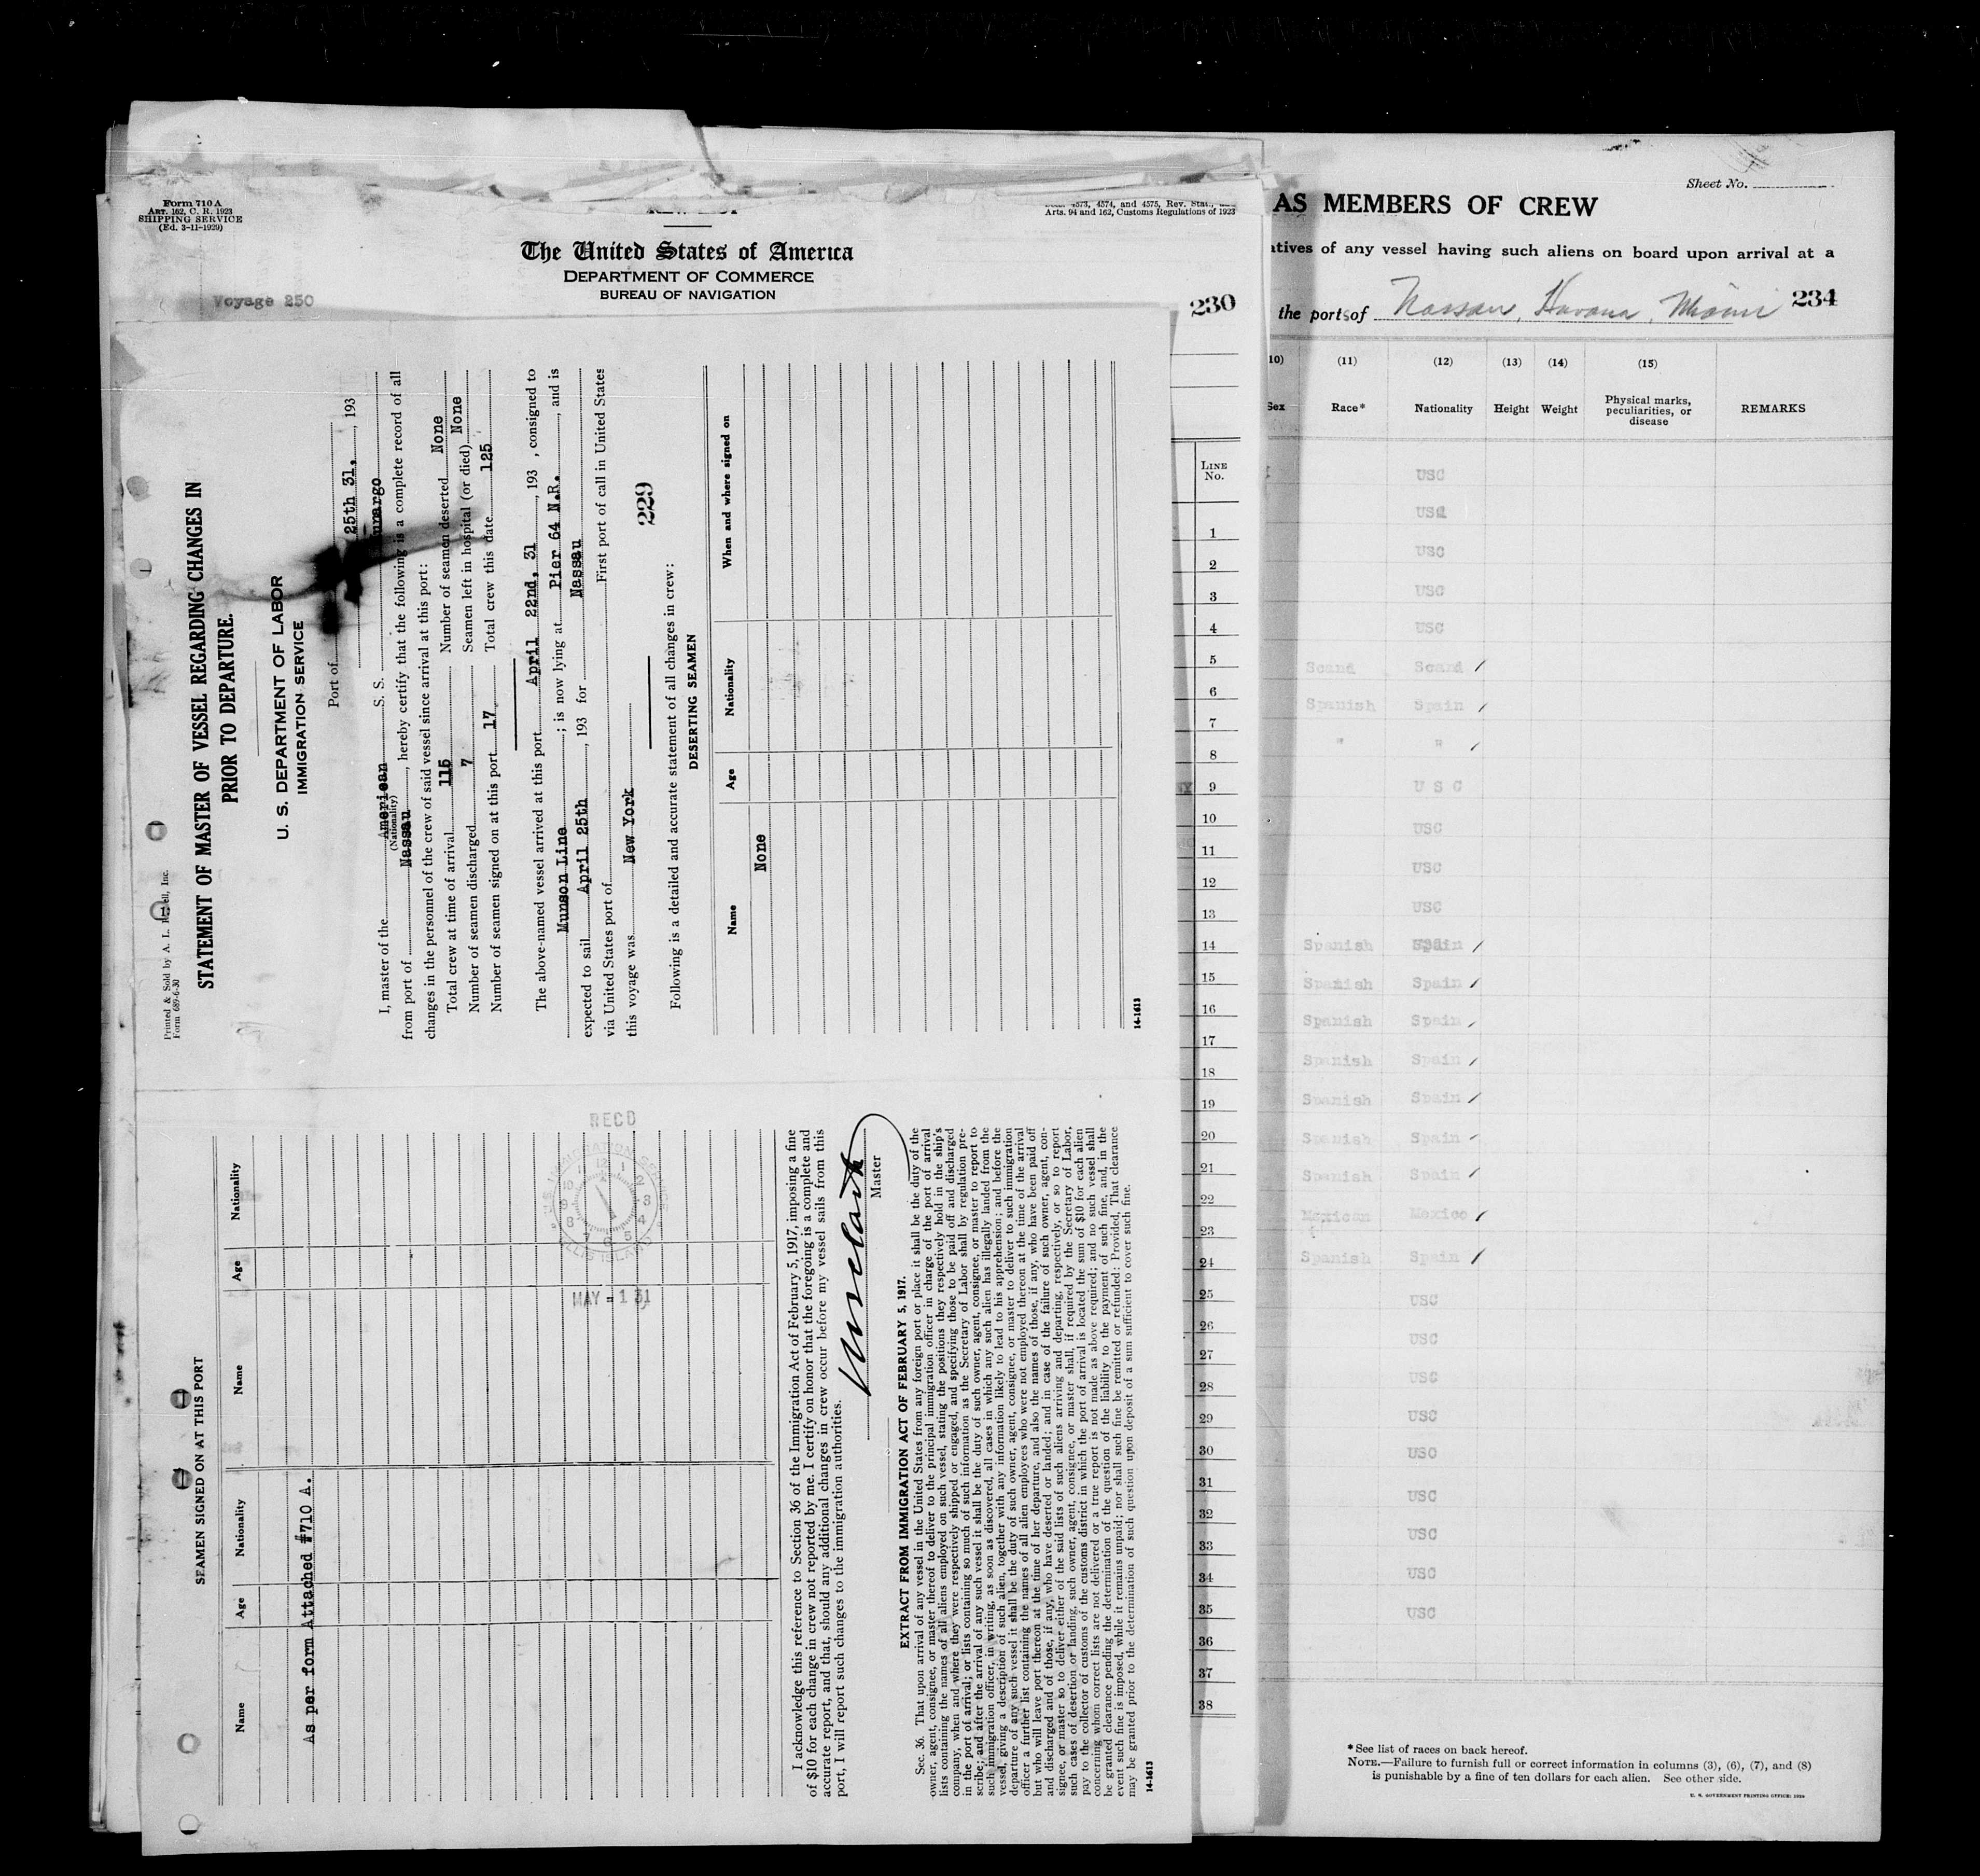 Form 710 A
ART. 162, C. R. 1923
SHIPPING SERVICE
(Ed. 3-11-1929)
4573, 4574, and 4575, Rev. Stat.,
Arts. 94 and 162, Customs Regulations of 1923
The United States of America
DEPARTMENT OF COMMERCE
BUREAU OF NAVIGATION
Voyage 250
230
Printed & Sold by A. L. Inc.
Form 689-6-30
STATEMENT OF MASTER OF VESSEL REGARDING CHANGES IN
PRIOR TO DEPARTURE.
U. S. DEPARTMENT OF LABOR
IMMIGRATION SERVICE
Port of
25th 31, , 193
I, master of the American S. S. unargo
(Nationality)
from port of Nassau , hereby certify that the following is a complete record of all
changes in the personnel of the crew of said vessel since arrival at this port:
Total crew at time of arrival 115 Number of seamen deserted None
Number of seamen discharged 7 Seamen left in hospital (or died) None
Number of seamen signed on at this port 17 Total crew this date 125
The above-named vessel arrived at this port April 22nd, 31 , 193 , consigned to
Munson Line ; is now lying at Pier 64 N.R. , and is
expected to sail April 25th , 193 for Nassau
via United States port of First port of call in United States
this voyage was New York
229
Following is a detailed and accurate statement of all changes in crew:
DESERTING SEAMEN
Name Age Nationality When and where signed on
None
14-1613
SEAMEN SIGNED ON AT THIS PORT
Name Age Nationality Name Age Nationality
As per form Attached #710 A.
RECD
IMMIGRATION SERVICE
ELLIS ISLAND
MAY - 1 31
I acknowledge this reference to Section 36 of the Immigration Act of February 5, 1917, imposing a fine
of $10 for each change in crew not reported by me. I certify on honor that the foregoing is a complete and
accurate report, and that, should any additional changes in crew occur before my vessel sails from this
port, I will report such changes to the immigration authorities.
Master
EXTRACT FROM IMMIGRATION ACT OF FEBRUARY 5, 1917.
Sec. 36. That upon arrival of any vessel in the United States from any foreign port or place it shall be the duty of the
owner, agent, consignee, or master thereof to deliver to the principal immigration officer in charge of the port of arrival
lists containing the names of all aliens employed on such vessel, stating the positions they respectively hold in the ship's
company, when and where they were respectively shipped or engaged, and specifying those to be paid off and discharged
in the port of arrival; or lists containing so much of such information as the Secretary of Labor shall by regulation pre-
scribe; and after the arrival of any such vessel it shall be the duty of such owner, agent, consignee, or master to report to
such immigration officer, in writing, as soon as discovered, all cases in which any such alien has illegally landed from the
vessel, giving a description of such alien, together with any information likely to lead to his apprehension; and before the
departure of any such vessel it shall be the duty of such owner, agent, consignee, or master to deliver to such immigration
officer a further list containing the names of all alien employees who were not employed thereon at the time of the arrival
but who will leave port thereon at the time of her departure, and also the names of those, if any, who have been paid off
and discharged and of those, if any, who have deserted or landed; and in case of the failure of such owner, agent, con-
signee, or master so to deliver either of the said lists of such aliens arriving and departing, respectively, or so to report
such cases of desertion or landing, such owner, agent, consignee, or master shall, if required by the Secretary of Labor,
pay to the collector of customs of the customs district in which the port of arrival is located the sum of $10 for each alien
concerning whom correct lists are not delivered or a true report is not made as above required; and no such vessel shall
be granted clearance pending the determination of the question of the liability to the payment of such fine, and, in the
event such fine is imposed, while it remains unpaid; nor shall such fine be remitted or refunded: Provided, That clearance
may be granted prior to the determination of such question upon deposit of a sum sufficient to cover such fine.
14-1613
LINE
No.
1
2
3
4
5
6
7
8
9
10
11
12
13
14
15
16
17
18
19
20
21
22
23
24
25
26
27
28
29
30
31
32
33
34
35
36
37
38
Sheet No.
AS MEMBERS OF CREW
atives of any vessel having such aliens on board upon arrival at a
the ports of Nassau, Havana, Miami 234
10) (11) (12) (13) (14) (15)
Sex Race* Nationality Height Weight Physical marks, peculiarities, or disease REMARKS
USC
USC
USC
USC
USC
Scand Scand /
Spanish Spain /
" " /
U S C
USC
USC
USC
Spanish Spain /
Spanish Spain /
Spanish Spain /
Spanish Spain /
Spanish Spain /
Spanish Spain /
Spanish Spain /
Mexican Mexico /
Spanish Spain /
USC
USC
USC
USC
USC
USC
USC
USC
USC
*See list of races on back hereof.
NOTE.—Failure to furnish full or correct information in columns (3), (6), (7), and (8)
is punishable by a fine of ten dollars for each alien. See other side.
U. S. GOVERNMENT PRINTING OFFICE: 1929